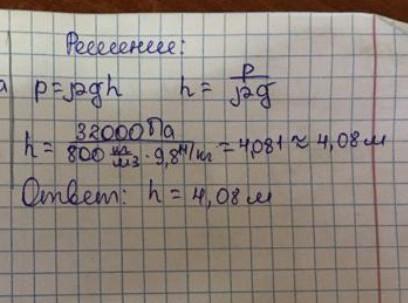 Решение:
а p=ρgh h = p/ρg
h = 32000 Па / 800 кг/м3 · 9,8 Н/кг = 4,081 ≈ 4,08 м
Ответ: h = 4,08 м